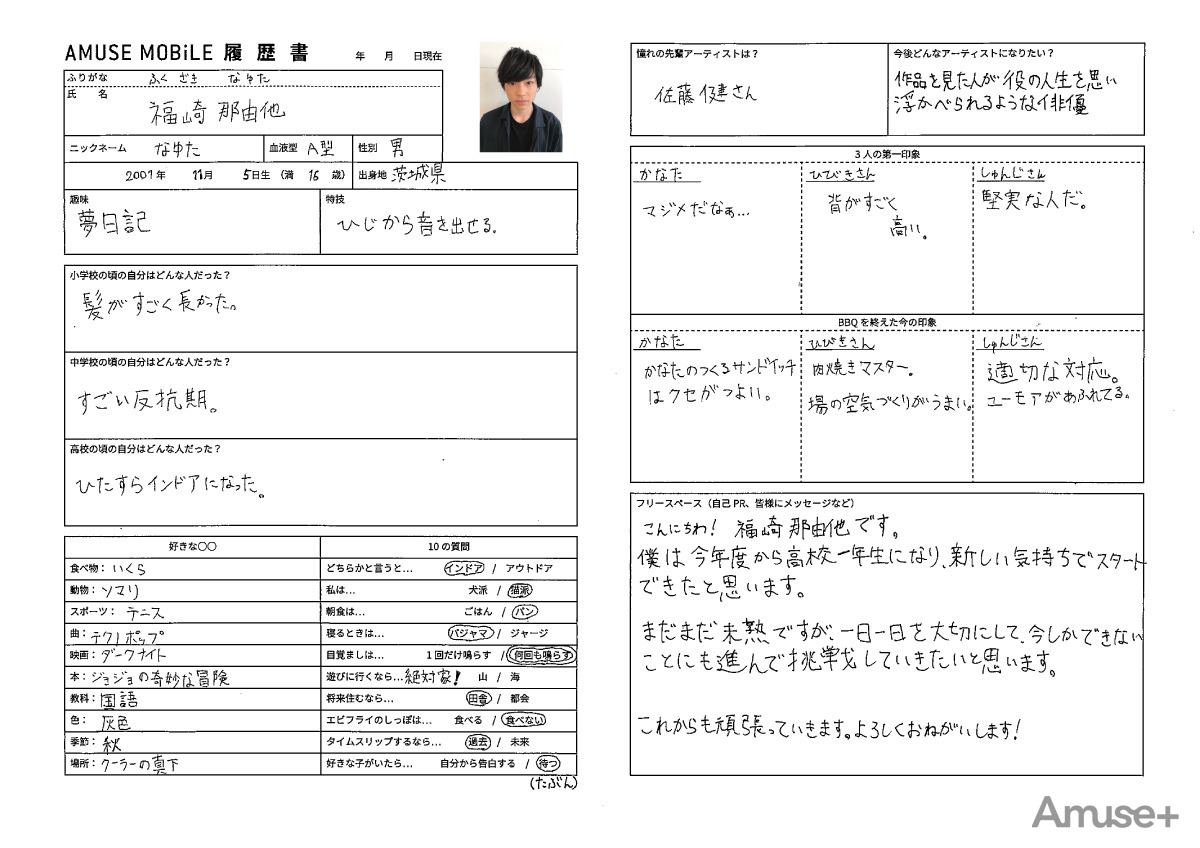 AMUSE MOBiLE 履歴書
年 月 日現在
ふりがな ふくざき なゆた
氏名 福崎 那由他
ニックネーム なゆた 血液型 A型 性別 男
2001年 11月 5日生 (満 16 歳) 出身地 茨城県
趣味
夢日記
特技
ひじから音を出せる。
小学校の頃の自分はどんな人だった？
髪がすごく長かった。
中学校の頃の自分はどんな人だった？
すごい反抗期。
高校の頃の自分はどんな人だった？
ひたすらインドアになった。
好きな〇〇
食べ物：いくら
動物：ソマリ
スポーツ：テニス
曲：テクノポップ
映画：ダークナイト
本：ジョジョの奇妙な冒険
教科：国語
色：灰色
季節：秋
場所：クーラーの真下
10の質問
どちらかと言うと… インドア / アウトドア
私は… 犬派 / 猫派
朝食は… ごはん / パン
寝るときは… パジャマ / ジャージ
目覚ましは… 1回だけ鳴らす / 何回も鳴らす
遊びに行くなら… 絶対家！ 山 / 海
将来住むなら… 田舎 / 都会
エビフライのしっぽは… 食べる / 食べない
タイムスリップするなら… 過去 / 未来
好きな子がいたら… 自分から告白する / 待つ
(たぶん)
憧れの先輩アーティストは？
佐藤健さん
今後どんなアーティストになりたい？
作品を見た人が役の人生を思い
浮かべられるような俳優
3人の第一印象
かなた
マジメだなぁ…
ひびきさん
背がすごく
高い。
しゅんじさん
堅実な人だ。
BBQを終えた今の印象
かなた
かなたのつくるサンドイッチ
はクセがつよい。
ひびきさん
肉焼きマスター。
場の空気づくりがうまい。
しゅんじさん
適切な対応。
ユーモアがあふれてる。
フリースペース（自己PR、皆様にメッセージなど）
こんにちわ！ 福崎那由他です。
僕は今年度から高校一年生になり、新しい気持ちでスタート
できたと思います。
まだまだ未熟ですが、一日一日を大切にして、今しかできない
ことにも進んで挑戦していきたいと思います。
これからも頑張っていきます。よろしくおねがいします！
Amuse+